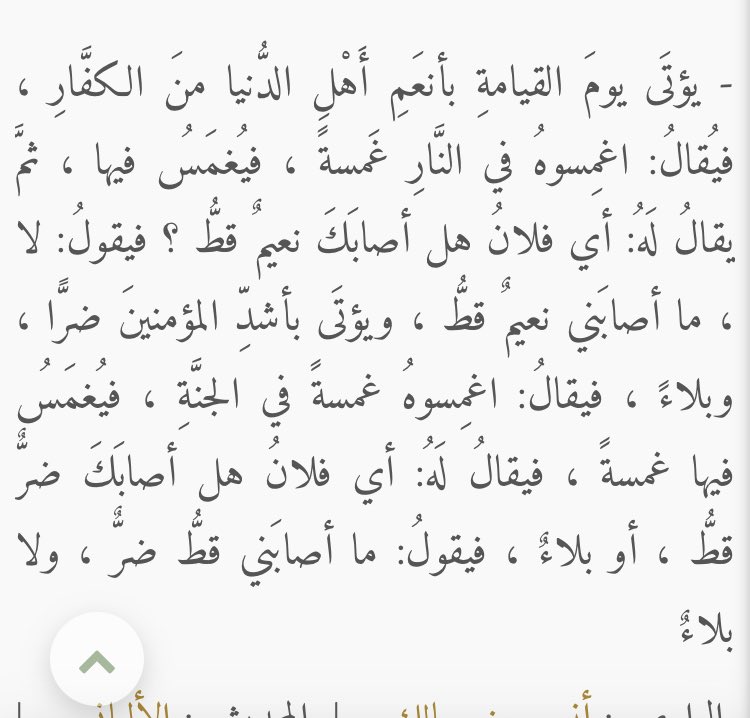 - يؤتَى يومَ القيامةِ بأنعَمِ أَهْلِ الدُّنيا منَ الكفَّارِ ،
فيُقالُ: اغمِسوهُ في النَّارِ غَمسةً ، فيُغمَسُ فيها ، ثمَّ
يقالُ لَهُ: أي فلانُ هل أصابَكَ نعيمٌ قطُّ ؟ فيقولُ: لا
، ما أصابَني نعيمٌ قطُّ ، ويؤتَى بأشدِّ المؤمنينَ ضرًّا ،
وبلاءً ، فيقالُ: اغمِسوهُ غمسةً في الجنَّةِ ، فيُغمَسُ
فيها غمسةً ، فيقالُ لَهُ: أي فلانُ هل أصابَكَ ضرٌّ
قطُّ ، أو بلاءٌ ، فيقولُ: ما أصابَني قطُّ ضرٌّ ، ولا
بلاءٌ